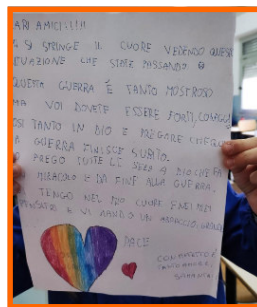 ARI AMICI...!!!
SI STRINGE IL CUORE VEDENDO QUESTA
TUAZIONE CHE STATE PASSANDO
QUESTA GUERRA É TANTO MOSTROSO
MA VOI DOVETE ESSERE FORTI,
TANTO IN DIO E PREGARE CHE
A GUERRA FINISCE SUBITO.
PREGO TUTTE LE SERE A DIO CHE FA
MIRACOLO E DA FINE ALLA GUERRA.
TENGO NEL MIO CUORE
E VI MANDO UN ABBRACCIO GRANDE
PACE
CON AFFETTO E